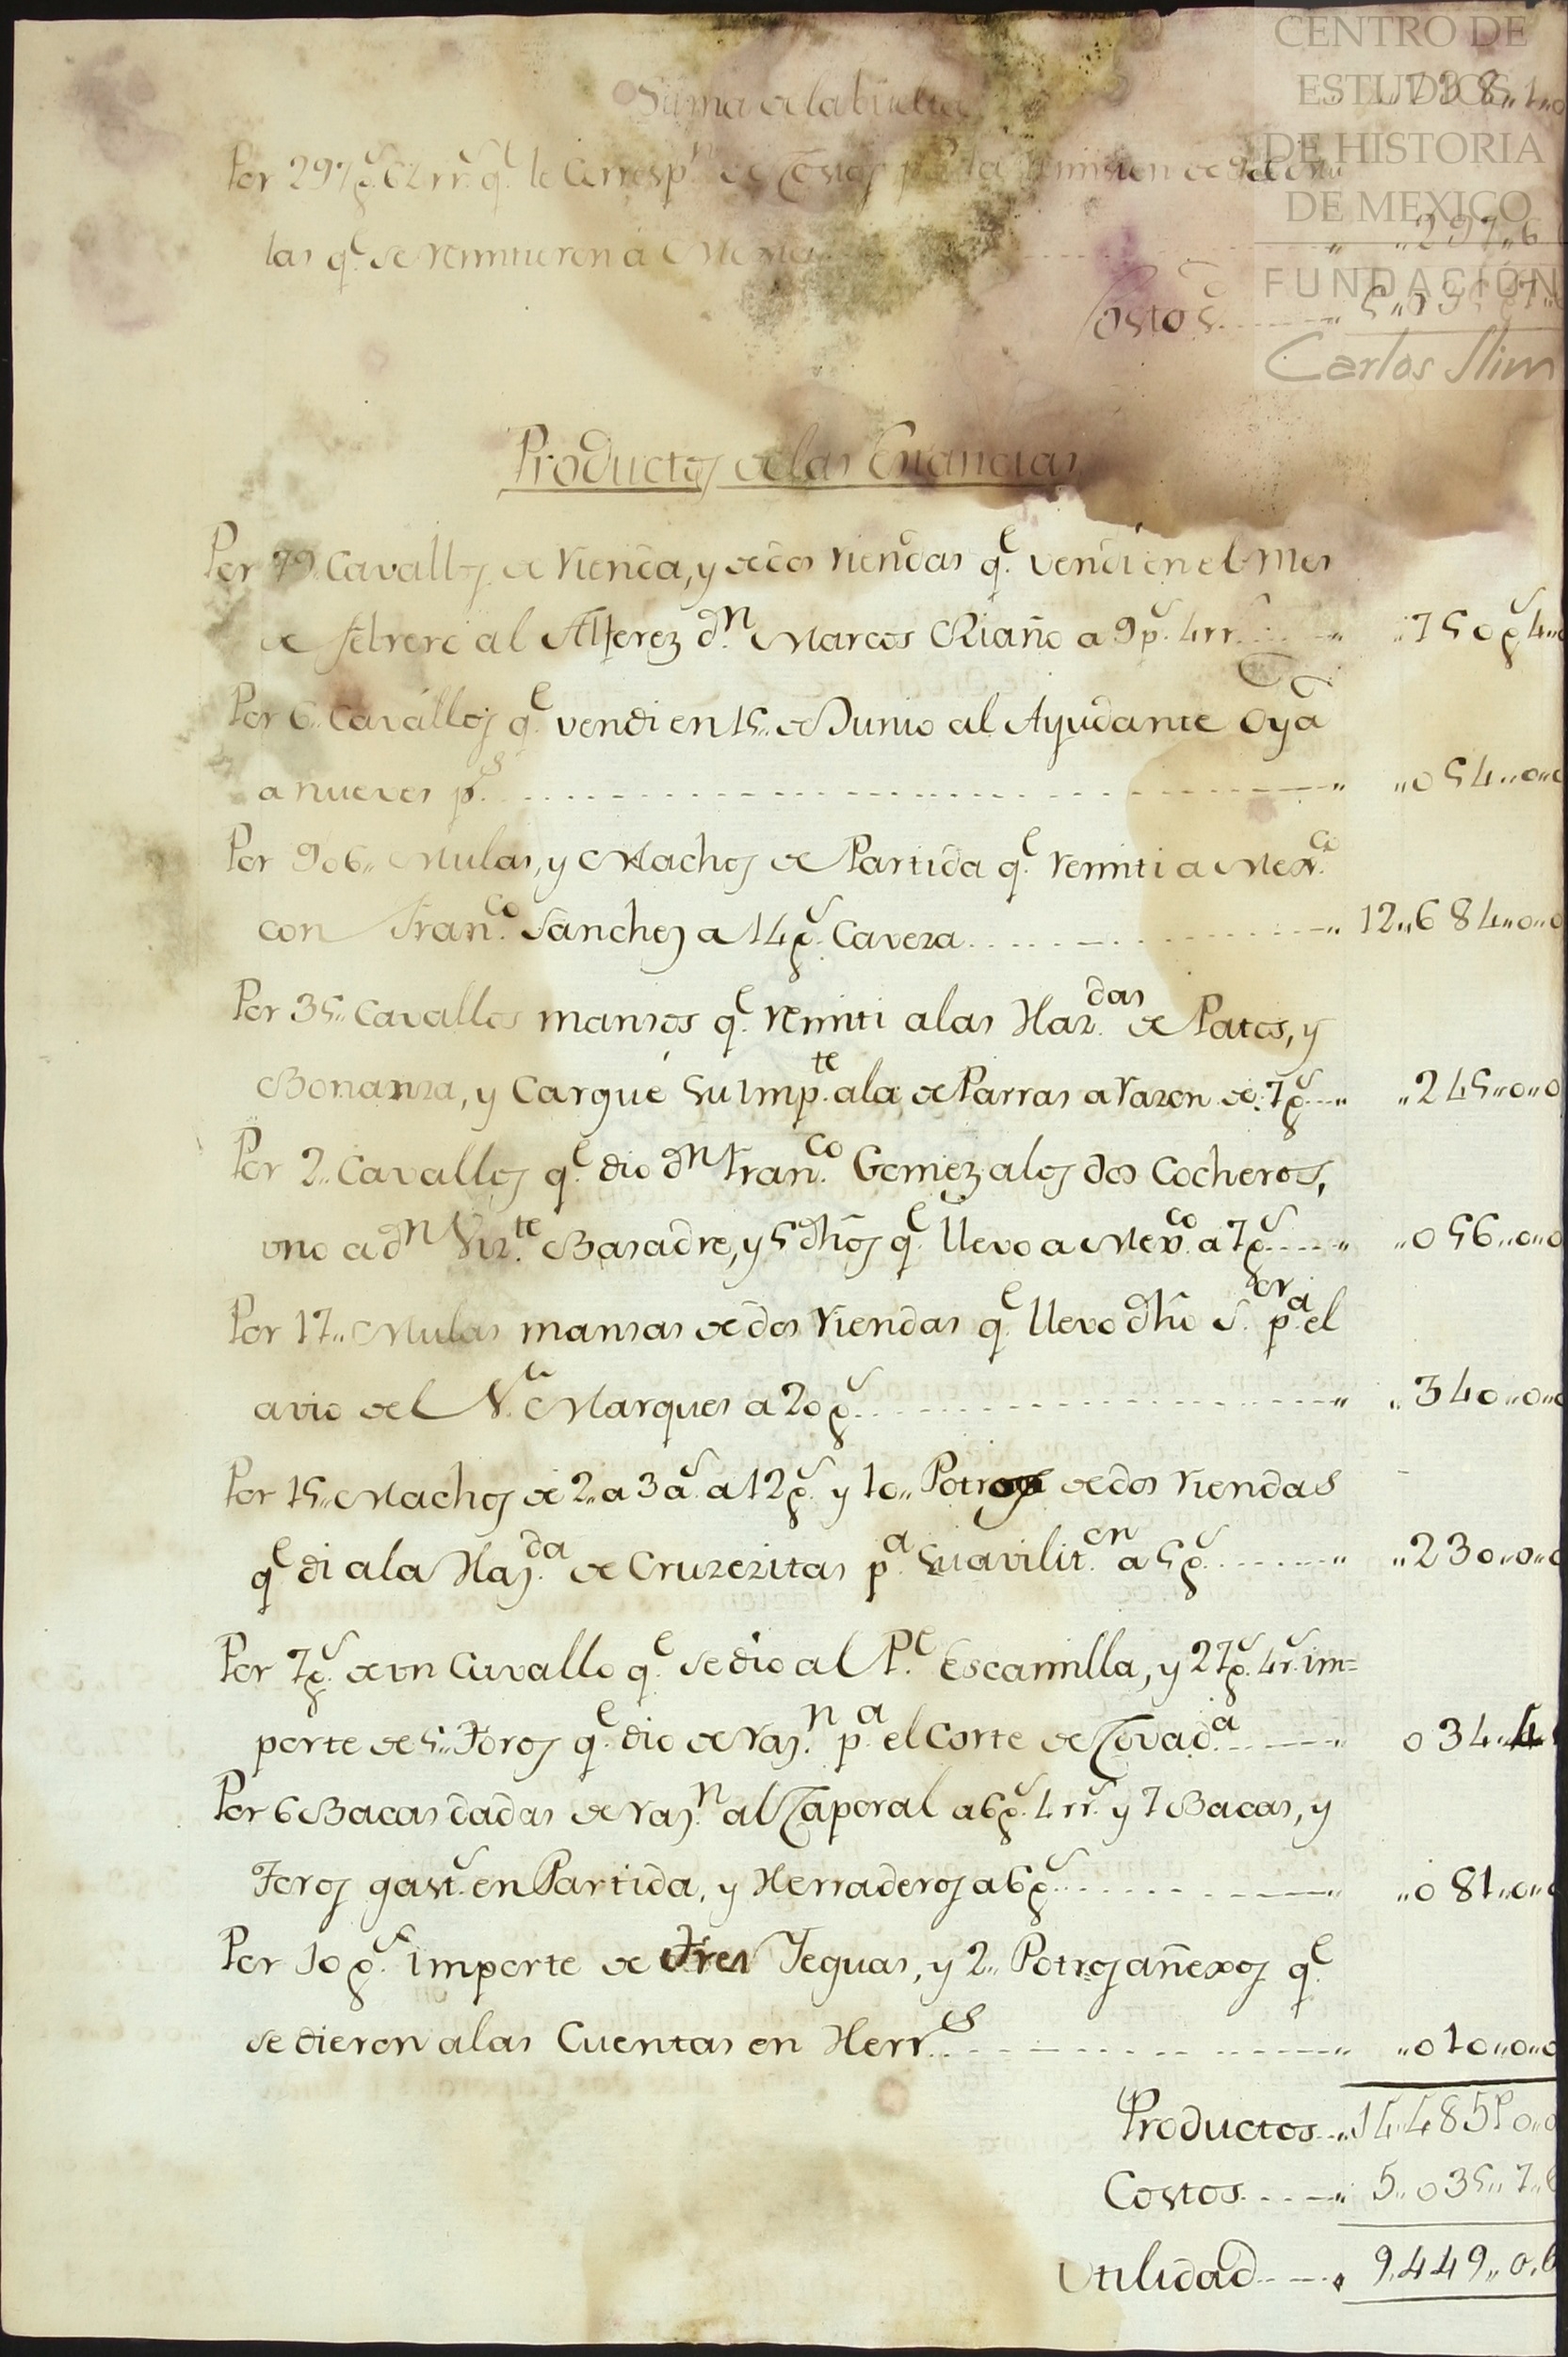 Suma de la buelta .. 4..738..1..0
Por 297p.s 6 rr.s q.e le corresp.n de Costos p.a la remision de
las q.e se remitieron a Mexico .. 297..6
Costos .. 5..035..7
Productos de las Criancias
Por 79. Cavallos de rienda, y de dos riendas q.e vendi en el Mes
de febrero al Alferez d.n Marcos Riaño a 9p.s 4rr. .. 750p.s4..0
Por 6. Cavallos q.e vendi en 15.. de Junio al Ayudante Oya
a nueves p.s .. 054..0..0
Por 906.. Mulas, y Machos de Partida q.e remiti a Mex.co
con Fran.co Sanches a 14p.s Caveza .. 12..684..0..0
Por 35.. Cavallos mansos q.e remiti a las Haz.das de Patos, y
Bonanza, y Cargué su imp.te ala de Parras a razon de 7p.s .. 245..0..0
Por 2.. Cavallos q.e dio d.n Fran.co Gomez alos dos Cocheros,
uno a d.n Viz.te Basadre, y 5 dhos q.e llevo a Mex.co a 7p.s .. 056..0..0
Por 17.. Mulas mansas de dos riendas q.e llevo dho S.or p.a el
avio del S. Marques a 20p.s .. 340..0..0
Por 15.. Machos de 2.. a 3 a.s a 12p.s y 10.. Potros de dos riendas
q.e di ala Haz.da de Cruzezitas p.a su avilit.on a 5p.s .. 230..0..0
Por 7p.s de un Cavallo q.e se dio al P.e Escamilla, y 27p.s 4r.s im=
porte de 5.. Toros q.e dio de raz.n p.a el Corte de Covad.a .. 034..4
Por 6 Bacas dadas de raz.n al Caporal a 6p.s 4rr.s y 7 Bacas, y
Toros gast.s en Partida, y Herraderos a 6p.s .. 081..0..0
Por 10p.s importe de tres Yeguas, y 2.. Potros añexos q.e
se dieron alas Cuentas en Herr.es .. 010..0..0
Productos .. 14.485p0..0
Costos .. 5..035..7..6
Utilidad .. 9.449..0.6
CENTRO DE
ESTUDIOS
DE HISTORIA
DE MEXICO
FUNDACIÓN
Carlos Slim